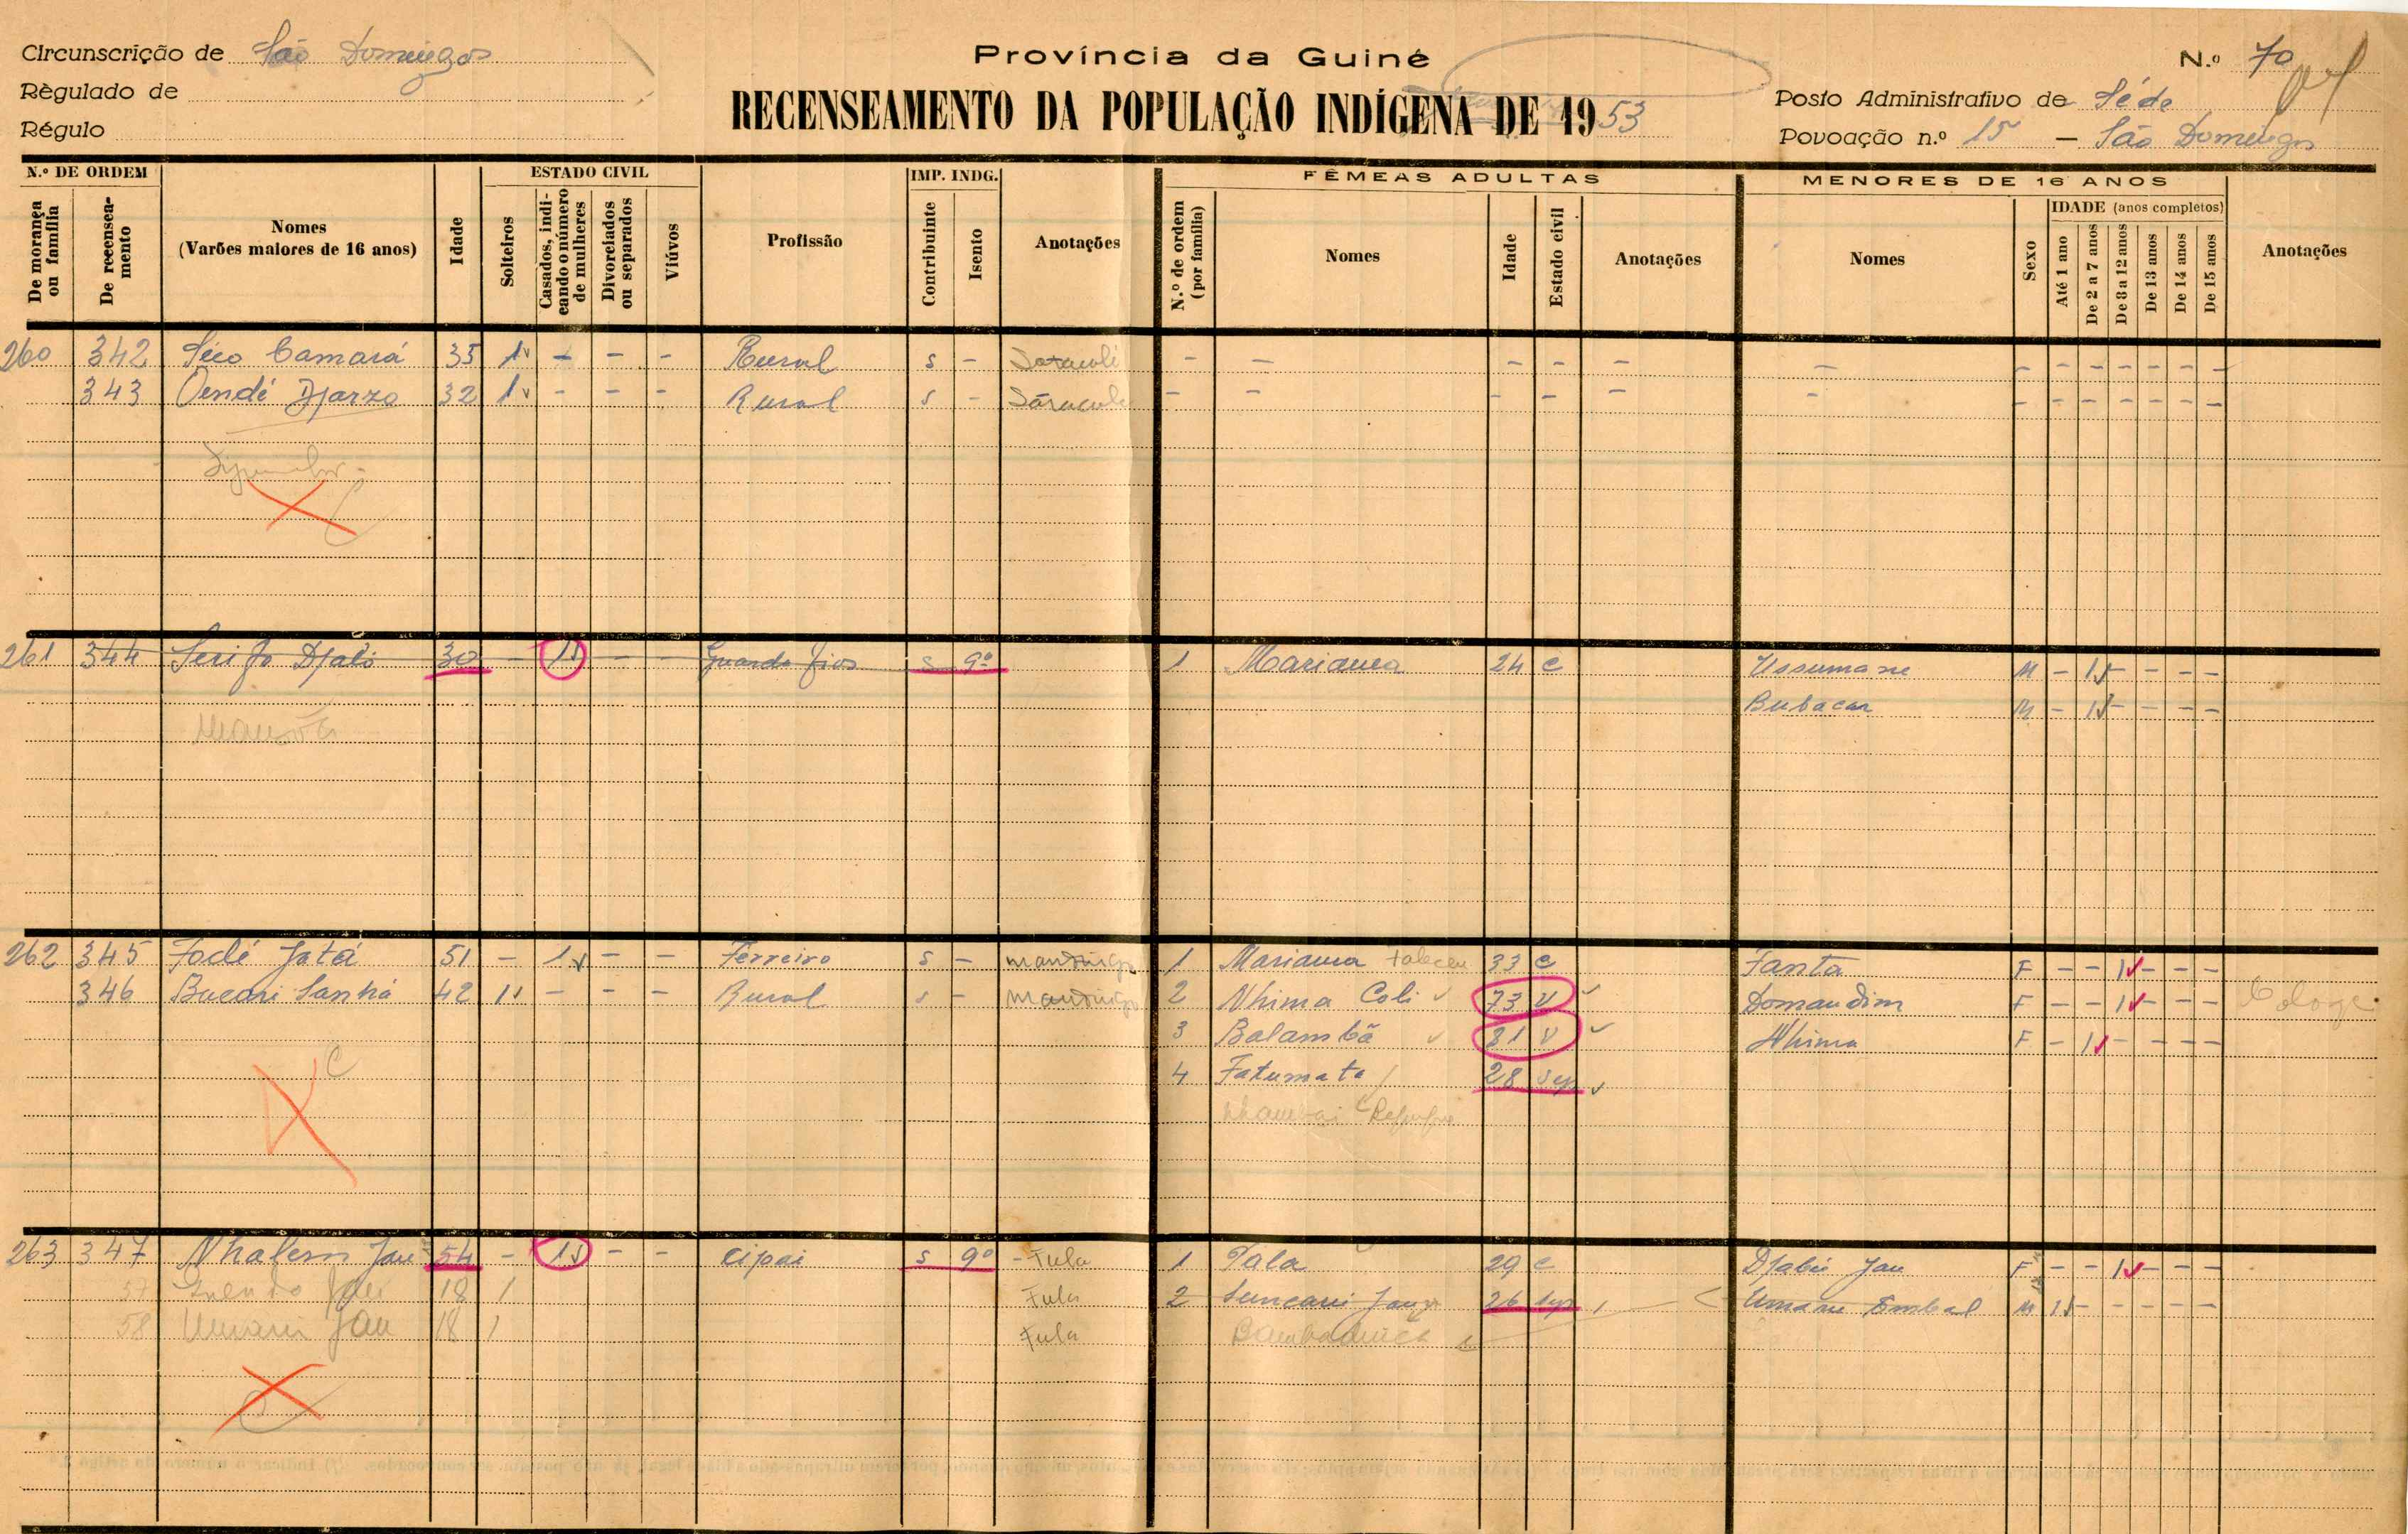 Circunscrição de São Domingos
Règulado de
Régulo
Província da Guiné
RECENSEAMENTO DA POPULAÇÃO INDÍGENA DE 1953
N.º 70
Posto Administrativo de Séde
Povoação n.º 15 – São Domingos
N.º DE ORDEM
De morança ou família
De recensea-mento
Nomes
(Varões maiores de 16 anos)
Idade
ESTADO CIVIL
Solteiros
Casados, indi-cando o número de mulheres
Divorciados ou separados
Viúvos
Profissão
IMP. INDG.
Contribuinte
Isento
Anotações
FÊMEAS ADULTAS
N.º de ordem (por família)
Nomes
Idade
Estado civil
Anotações
MENORES DE 16 ANOS
Nomes
Sexo
IDADE (anos completos)
Até 1 ano
De 2 a 7 anos
De 8 a 12 anos
De 13 anos
De 14 anos
De 15 anos
Anotações
260 342 Séco Camará 35 1 – – – Rural s – Saracolé – – – – – – – – – – – – –
343 Djarzo 32 1 – – – Rural s – – – – – – – – – – – – – –
261 344 Serifo Djaló 30 – 1 – – Guarda fios s 9º 1 Mariama 24 c Ussumane M – 1 – – – –
Bubacar M – 1 – – – –
262 345 Fodé Jatá 51 – 1 – – Ferreiro s – mandinga 1 Mariama 33 c Fanta F – – 1 – – –
346 Bacari Sanhá 42 1 – – – Rural s – mandinga 2 Nhima Coli 73 v Domandim F – – 1 – – –
3 Balambã 81 v Nhima F – 1 – – – –
4 Fatumata 28 sep
263 347 Nhalem Jau 54 – 1 – – cipai s 9º – Fula 1 Tala 29 c Djabú Jau F – – 1 – – –
57 18 1 Fula 2 26 sep Umaru Embaló M 1 – – – – –
58 Umaru Jau 18 1 Fula